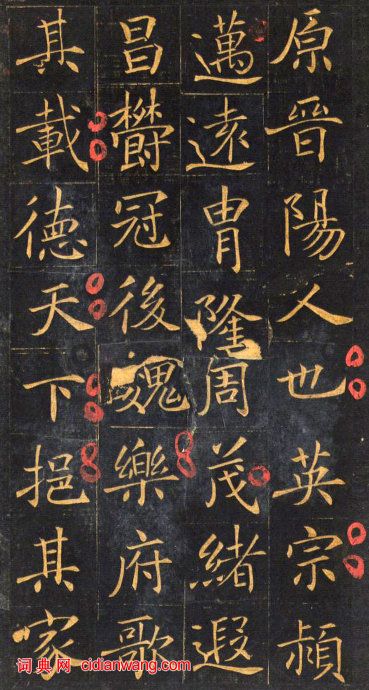 原晉陽人也英宗頴
邁遠胄隆周茂緒遐
昌欝冠後魏樂府歌
其載德天下挹其家
词典网 cidianwang.com